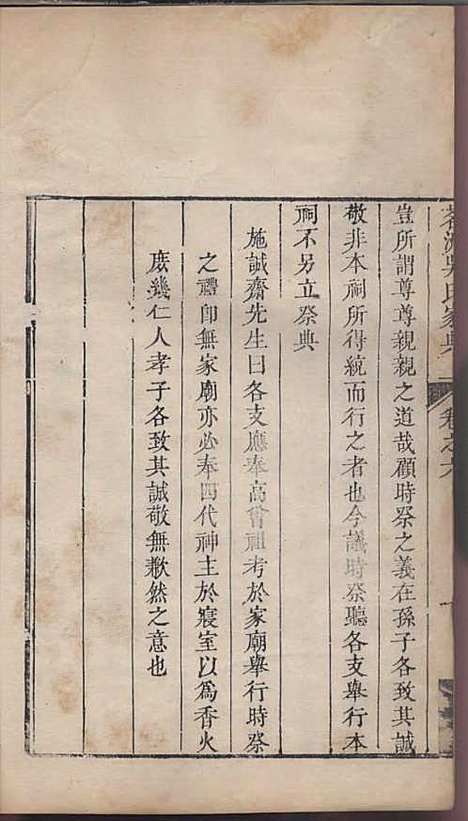 茗洲吳氏家典
卷之六
豈所謂尊尊親親之道哉顧時祭之義在孫子各致其誠
敬非本祠所得統而行之者也今議時祭聽各支舉行本
祠不另立祭典
施誠齋先生曰各支應奉高曾祖考於家廟舉行時祭
之禮卽無家廟亦必奉四代神主於寢室以為香火
庶幾仁人孝子各致其誠敬無歉然之意也